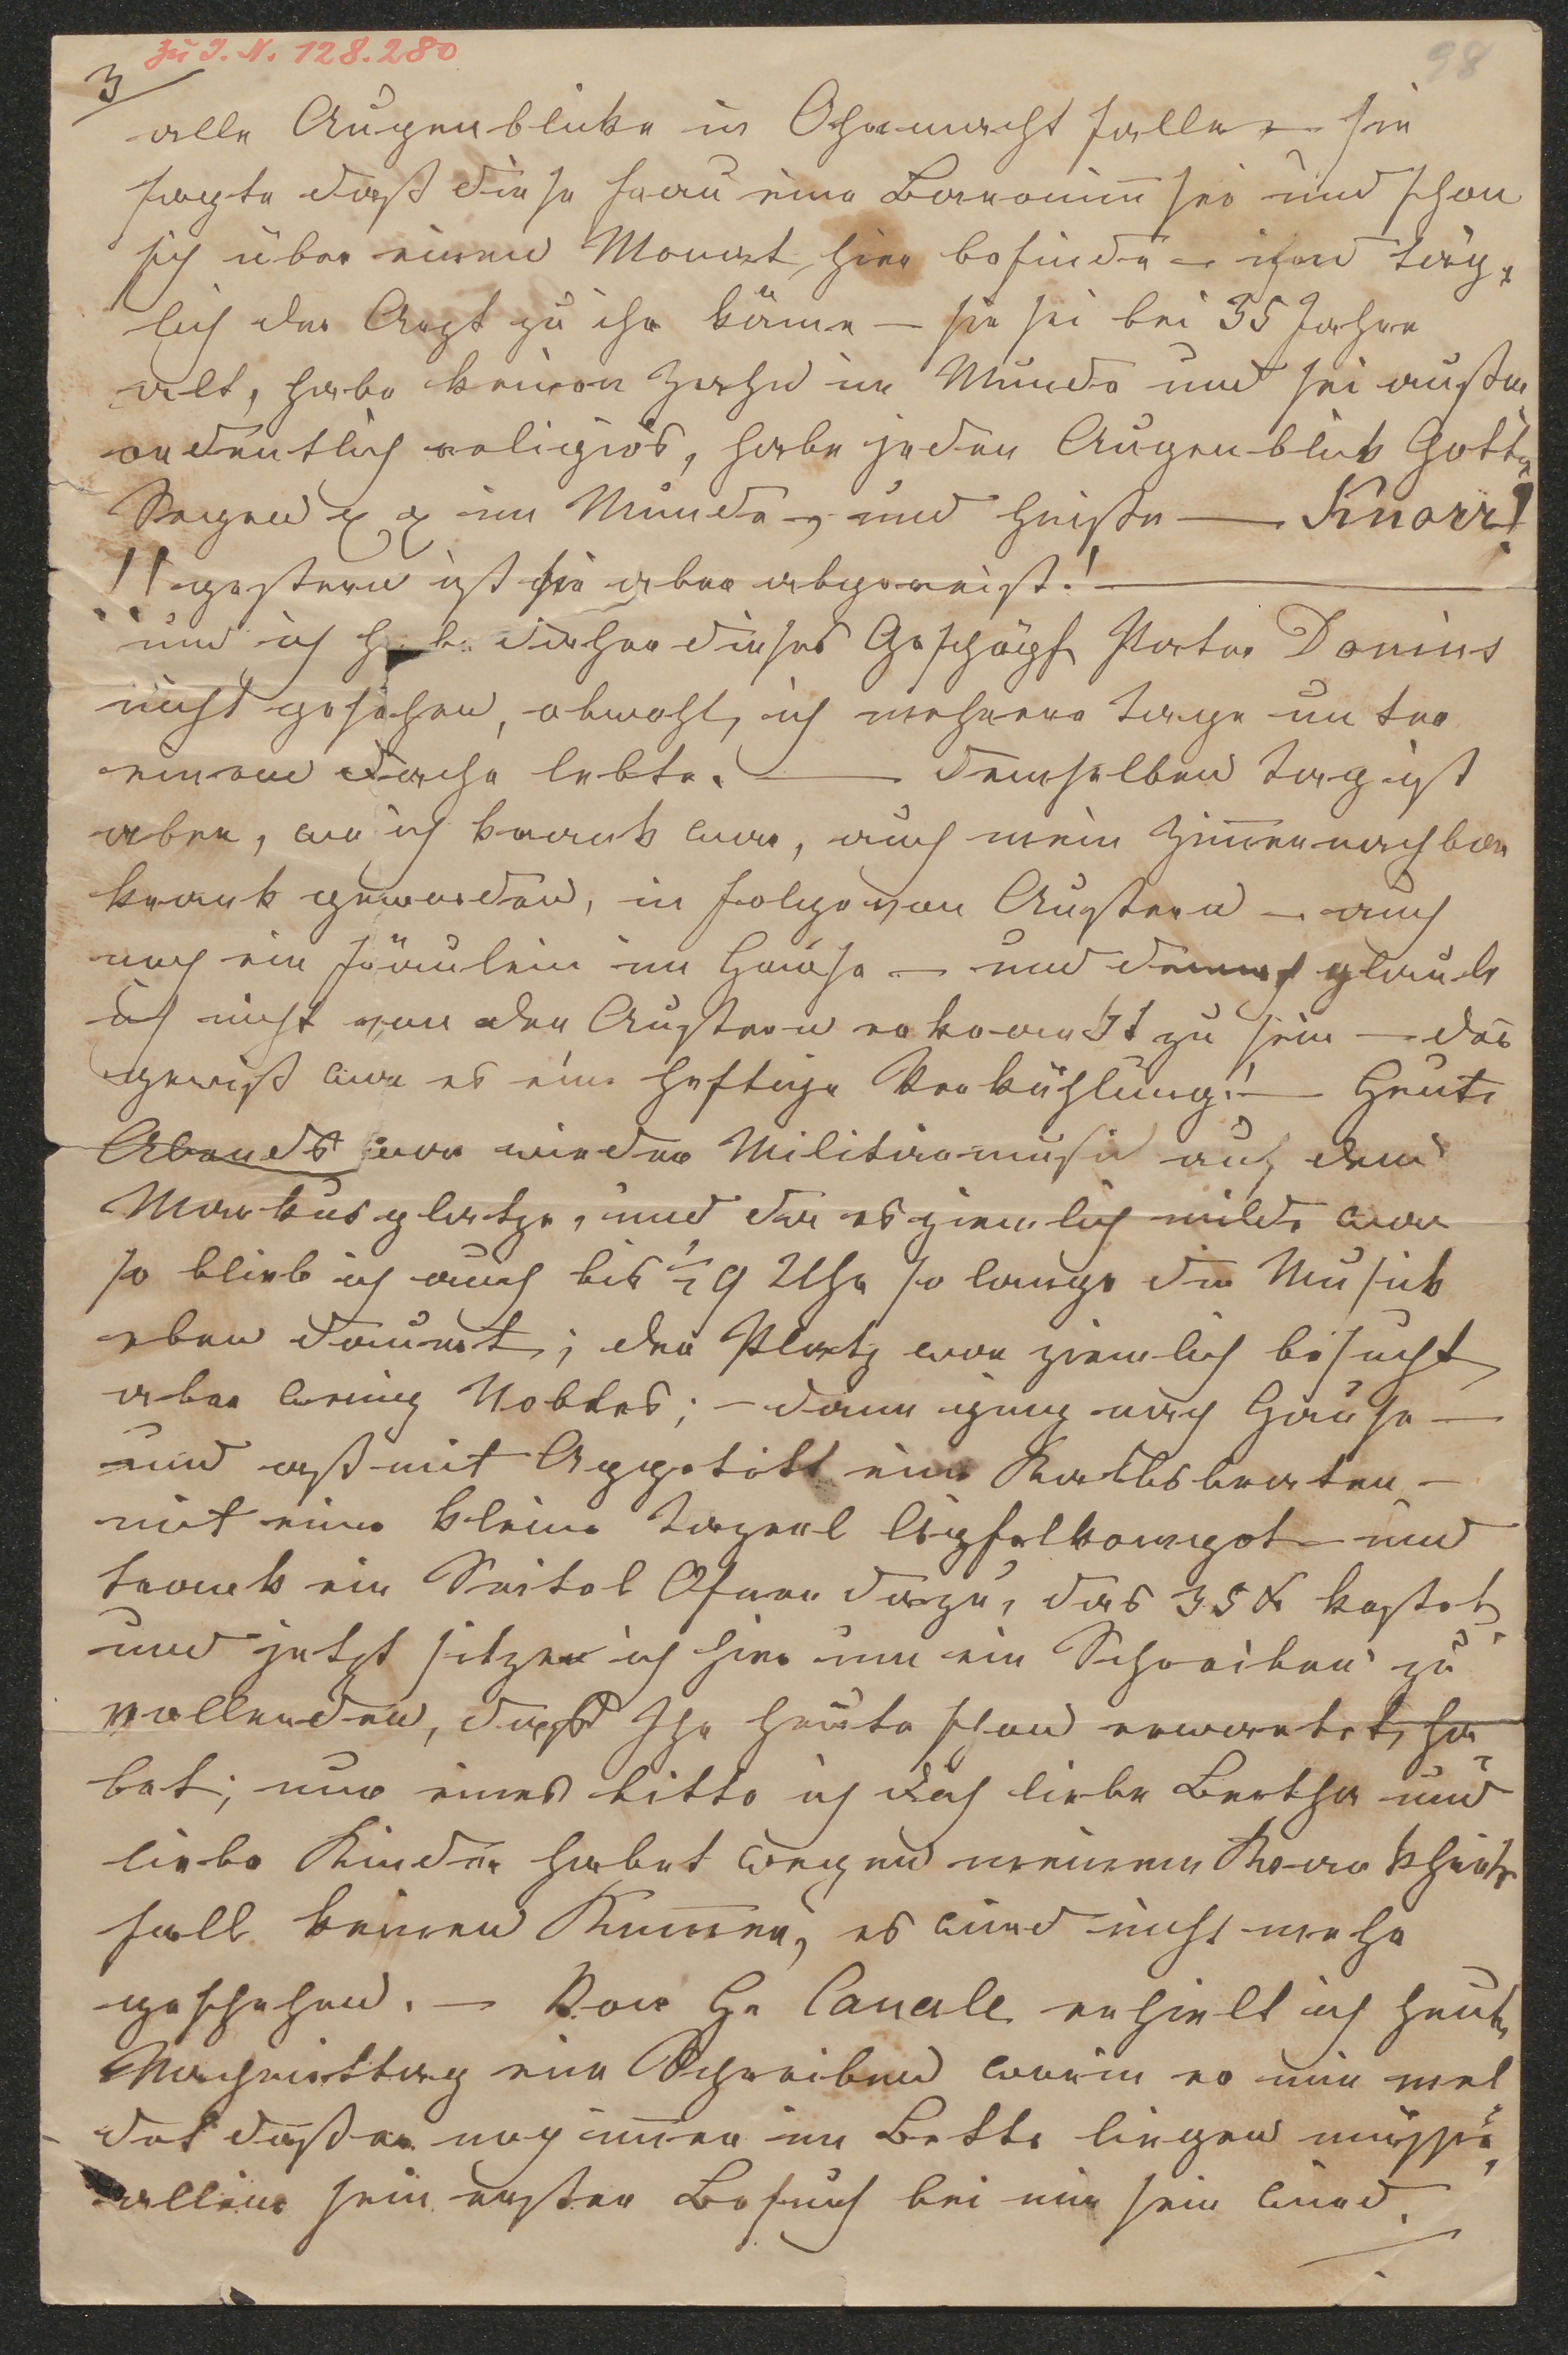 Zu I. N. 128.280
98
3/
alle Augenblicke in Ohnmacht falle – sie
sagte daß diese Frau eine Baronin̅ sei und schon
sich über einen Monat hier befinde – und täg¬
lich der Arzt zu ihr käme – sie sei bei 35 Jahre
alt, habe keinen Zahn im Munde und sei außer
ordentlich religiös, habe jeden Augenblick Gottes
Segen x x im Munde, und heiße — Knorr!
!! gestern ist sie aber abgereist! —
und ich habe daher dieses Geschöpf Pater Donins
nicht gesehen, obwohl, ich mehrere Tage unter
einem Dache lebte. — Demselben Tag ist
aber, wo ich krank war, auch mein Zim̅ernachbar
krank geworden, in Folge von Austern – auch
noch ein Fräulein im Hause – und dennoch glaube
ich nicht von den Austern erkrankt zu sein – das
gewiß war es eine heftige Verkühlung! – Heute
Abends war wieder Militärmusik auf dem
Markusplatze, und da es ziemlich milde war
so blieb ich auch bis ½ 9 Uhr so lange die Musik
eben dauert; der Platz war ziemlich besucht,
aber wenig Nobles; – dann ging nach Hause –
und aß mit Appetitt eine Kalbsbraten –
mit eine kleine Tazerl Apfelkompot – und
trank ein Seitel Ofner dazu, das 35 x kostet,
und jetzt sitze ich hier um ein Schreiben zu
vollenden, daß Ihr heute schon erwartet ha
bet; nur eines bitte ich dich liebe Bertha und
liebe Kinder habet wegen meinem Krankheits
fall keinen Kum̅er, es wird nicht mehr
geschehen. – Von H Canale erhielt ich heute
Nachmittag ein Schreiben worin er mir mel
det daß er noch im̅er im Bette liegen müsse,
allein sein erster Besuch bei mir sein wird.